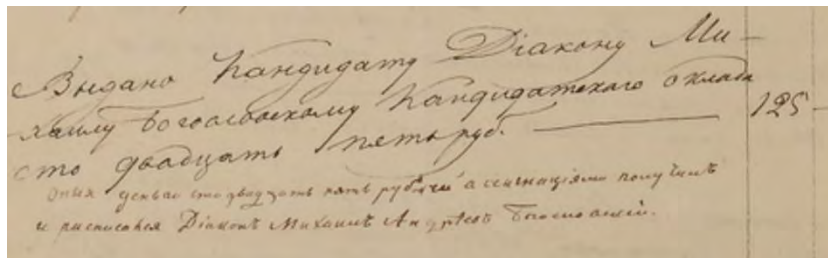 Выдано Кандидату Діакону Ми-
хаилу Богословскому Кандидатскаго оклада
сто двадцать пять руб. — 125
Оныя деньги сто двадцать пять рублей ассигнаціями получилъ
и расписался Діаконъ Михаилъ Андреевъ Богословскій.